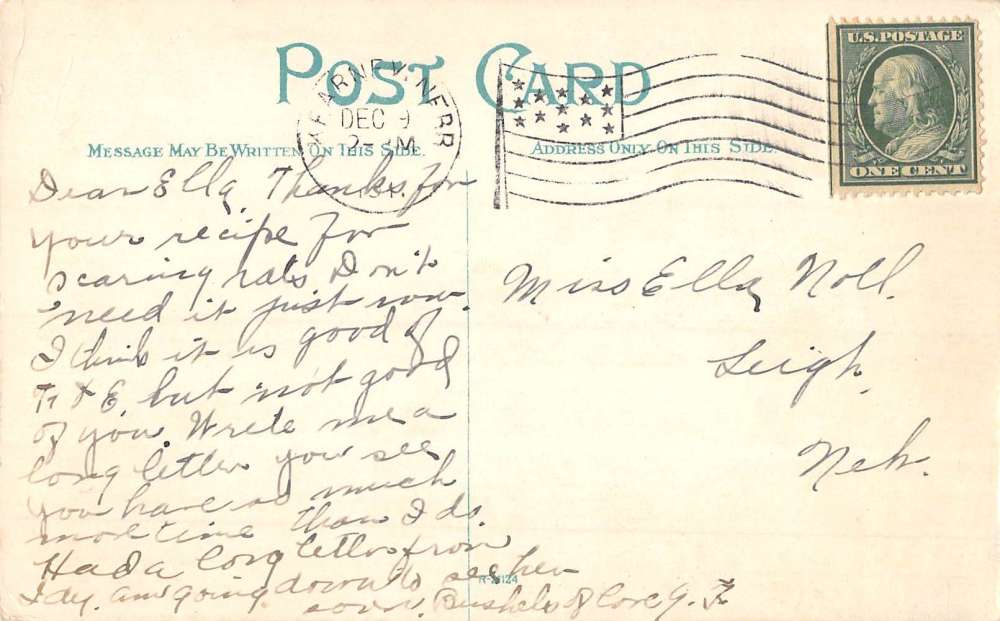 POST CARD
KEARNEY, NEBR
DEC 9
2- M
191
U.S. POSTAGE
ONE CENT
MESSAGE MAY BE WRITTEN ON THIS SIDE.
ADDRESS ONLY ON THIS SIDE.
Dear Ella, Thanks for
your recipe for
scaring rats Don't
need it just now.
I think it is good of
& E. but not good
of you. Write me a
long letter you see
you have so much
more time than I do.
Had a long letter from
Idy. am going down to see her
soon. Bushels of love G. F.
Miss Ella Noll.
Leigh,
Neb.